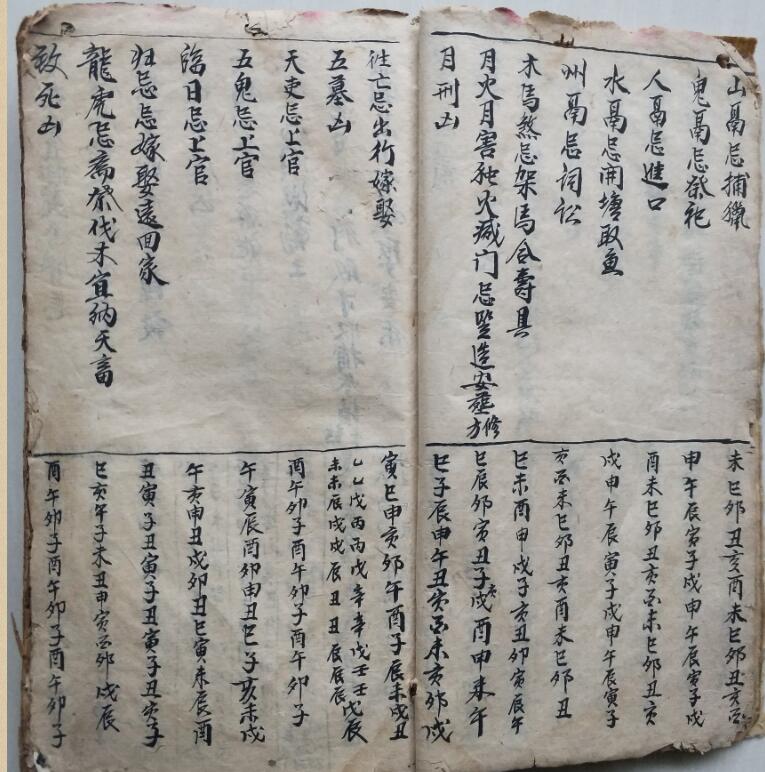 山鬲忌捕獵
未巳卯丑亥酉未巳卯丑亥酉
鬼鬲忌祭祀
申午辰寅子戌申午辰寅子戌
人鬲忌進口
酉未巳卯丑亥酉未巳卯丑亥
水鬲忌開塘取魚
戌申午辰寅子戌申午辰寅子
州鬲忌詞訟
亥酉未巳卯丑亥酉未巳卯丑
木馬煞忌架馬合壽具
巳未酉申戌子亥丑卯寅辰午
月火月害独火滅门忌竪造安葬修方
巳辰卯寅丑子亥戌酉申未午
月刑凶
巳子辰申午丑寅酉未亥卯戌
往亡忌出行嫁娶
寅巳申亥卯午酉子辰未戌丑
五墓凶
乙乙戊丙丙戊辛辛戊壬壬戊辰
未未辰戌戌辰丑丑辰辰辰
天吏忌上官
酉午卯子酉午卯子酉午卯子
五鬼忌上官
午寅辰酉卯申丑巳子亥未戌
臨日忌上官
午亥申丑戌卯丑巳寅未辰酉
归忌忌嫁娶遠回家
丑寅子丑寅子丑寅子丑寅子
龍虎忌斋醮伐木宜纳天畜
巳亥午子未丑申寅酉卯戌辰
致死凶
酉午卯子酉午卯子酉午卯子